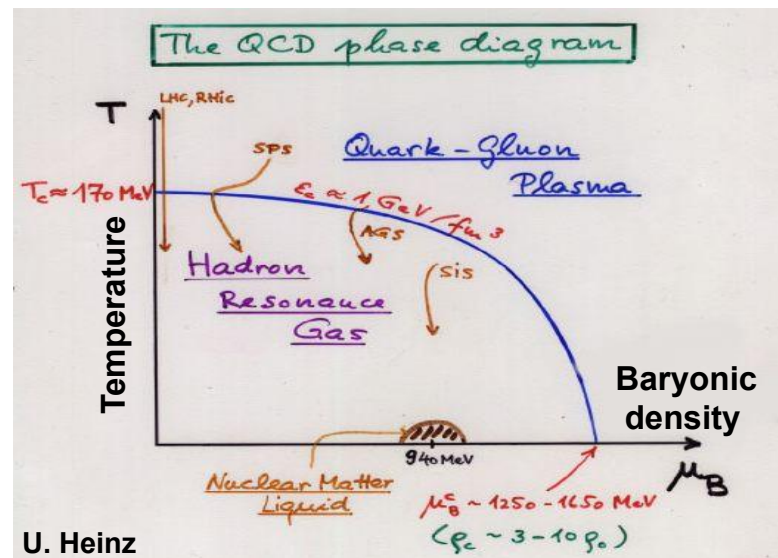 The QCD phase diagram
T
LHC, RHiC
SPS
Quark-Gluon
Plasma
Tc ≈ 170 MeV
εc ∝ 1 GeV/fm³
AGS
Hadron
Resonance
Gas
SiS
Temperature
Baryonic
density
940 MeV
μB
Nuclear Matter
Liquid
μ_B^c ~ 1250-1650 MeV
(ρc ~ 3-10 ρ0)
U. Heinz